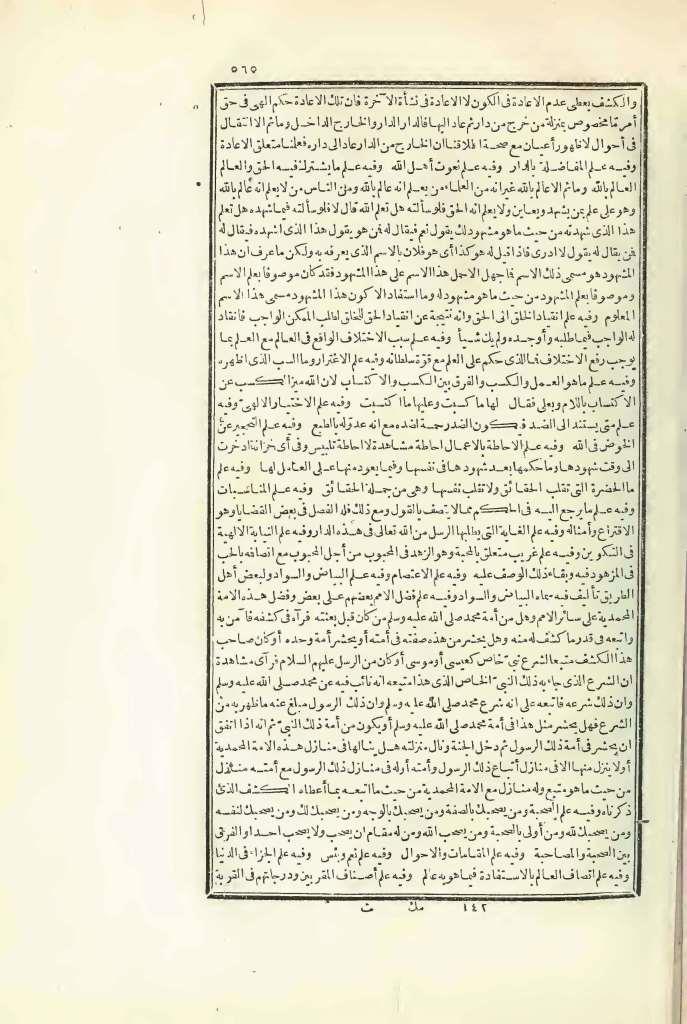 ٥٦٥
والكشف يعطى عدم الاعادة فى الكون لا الاعادة فى نشأة الآخرة فان تلك الاعادة حكم الهى فى حق
أمر ما مخصوص بمنزلة من خرج من دار ثم عاد اليها فالدار الدار والخارج الداخل وما ثم الا انتقال
فى أحوال لاظهور أعيان مع صحة اطلاقنا ان الخارج من الدار عاد الى داره فعلنا متعلق الاعادة
وفيه علم المفاضلة بالدار وفيه علم نعوت أهل الله وفيه علم ما يشترك فيه الحق والعالم
العالم بالله وما ثم الا عالم بالله غير انه من العلماء من يعلم انه عالم بالله ومن الناس من لا يعلم انه عالم بالله
وهو على علم بمن يشهد ويعاين ولا يعلم انه الحق فلو سألته هل تعلم الله قال لا فلو سألته فيما شهده هل تعلم
هذا الذى شهدته من حيث ما هو مشهود لك يقول نعم فيقال له فمن هو يقول هذا الذى اشهده فيقال له
فمن يقال له يقول لا ادرى فاذا قيل له هو كذا أى هو فلان بالاسم الذى يعرفه به ولكن ما عرف ان هذا
المشهود هو مسمى ذلك الاسم فما جهل الاحمل هذا الاسم على هذا المشهود فقد كان موصوفا بعلم الاسم
وموصوفا بعلم المشهود من حيث ما هو مشهود له وما استفاد الا كون هذا المشهود مسمى هذا الاسم
المعلوم وفيه علم انقياد الخلق الى الحق وانه نتيجة عن انقياد الحق للخلق لطلب الممكن الواجب فانقاد
له الواجب فيما طلبه وأوجده ولم يك شيأ وفيه علم سبب الاختلاف الواقع فى العالم مع العلم بما
يوجب رفع الاختلاف فما الذى حكم على العلم مع قوة سلطانه وفيه علم الاغترار وما السبب الذى اظهره
وفيه علم ما هو العمل والكسب والفرق بين الكسب والاكتساب لان الله ميز الكسب عن
الاكتساب باللام وبعلى فقال لها ما كسبت وعليها ما اكتسبت وفيه علم الاختيار الالهى وفيه
علم متى يستند الى الضد فيكون الضد رحمة لضده مع انه عدوله بالطبع وفيه علم التحجير عن
الخوض فى الله وفيه علم الاحاطة بالاعمال احاطة مشاهدة لا احاطة تلبيس وفى أى خزانة ادخرت
الى وقت شهودها وما حكمها بعد شهودها فى نفسها وفيما يعود منها على العامل لها وفيه علم
ما الحضرة التى تقلب الحقائق ولا تقلب نفسها وهى من جملة الحقائق وفيه علم المناسبات
وفيه علم ما يرجع اليه فى الحكم مما لا يتصف بالقول ومع ذلك فله الفصل فى بعض القضايا وهو
الاقتراع وأمثاله وفيه علم الغاية التى يطلبها الرسل من الله تعالى فى هذه الدار وفيه علم النيابة الالهية
فى التكوين وفيه علم غريب متعلق بالمحبة وهو الزهد فى المحبوب من أجل المحبوب مع اتصافه بالحب
فى المزهود فيه وبقاء ذلك الوصف عليه وفيه علم الاعتصام وفيه علم البياض والسواد ولبعض أهل
الطريق تأليف فيه سماه البياض والسواد وفيه علم فضل الامم بعضهم على بعض وفضل هذه الامة
المحمدية على سائر الامم وهل من أمة محمد صلى الله عليه وسلم من كان قبل بعثته فرآه فى كشفه فآمن به
واتبعه فى قدر ما كشف له منه وهل يحشر من هذه صفته فى أمته أو يحشر أمة وحده أو كان صاحب
هذا الكشف متبعا لشرع نبى خاص كعيسى أو موسى أو كان من الرسل عليهم السلام فرأى مشاهدة
ان الشرع الذى جاء به ذلك النبى الخاص الذى هذا متبعه انه نائب فيه عن محمد صلى الله عليه وسلم
وان ذلك شرعه فاتبعه على انه شرع محمد صلى الله عليه وسلم وان ذلك الرسول مبلغ عنه ما ظهر به من
الشرع فهل يحشر مثل هذا فى أمة محمد صلى الله عليه وسلم أو يكون من أمة ذلك النبى ثم انه اذا اتفق
ان يحشر فى أمة ذلك الرسول ثم دخل الجنة ونال منزلته هل ينالها فى منازل هذه الامة المحمدية
أو لا ينزل منها الا فى منازل أتباع ذلك الرسول وأمته أو له فى منازل ذلك الرسول مع أمته منازل
من حيث ما هو متبع وله منازل مع الامة المحمدية من حيث ما اتبعه بما أعطاه الكشف الذى
ذكرناه وفيه علم الصحبة ومن يصحبك بالصفة ومن يصحبك بالوجه ومن يصحبك لك ومن يصحبك لنفسه
ومن يصحبك لله ومن أولى بالصحبة ومن يصحب الله ومن له مقام ان يصحب ولا يصحب احدا والفرق
بين الصحبة والمصاحبة وفيه علم المقامات والاحوال وفيه علم نعم وبئس وفيه علم الجزاء فى الدنيا
وفيه علم اتصاف العالم بالاستفادة فيما هو به عالم وفيه علم أصناف المقربين ودرجاتهم فى القربة
١٤٢ مك ث